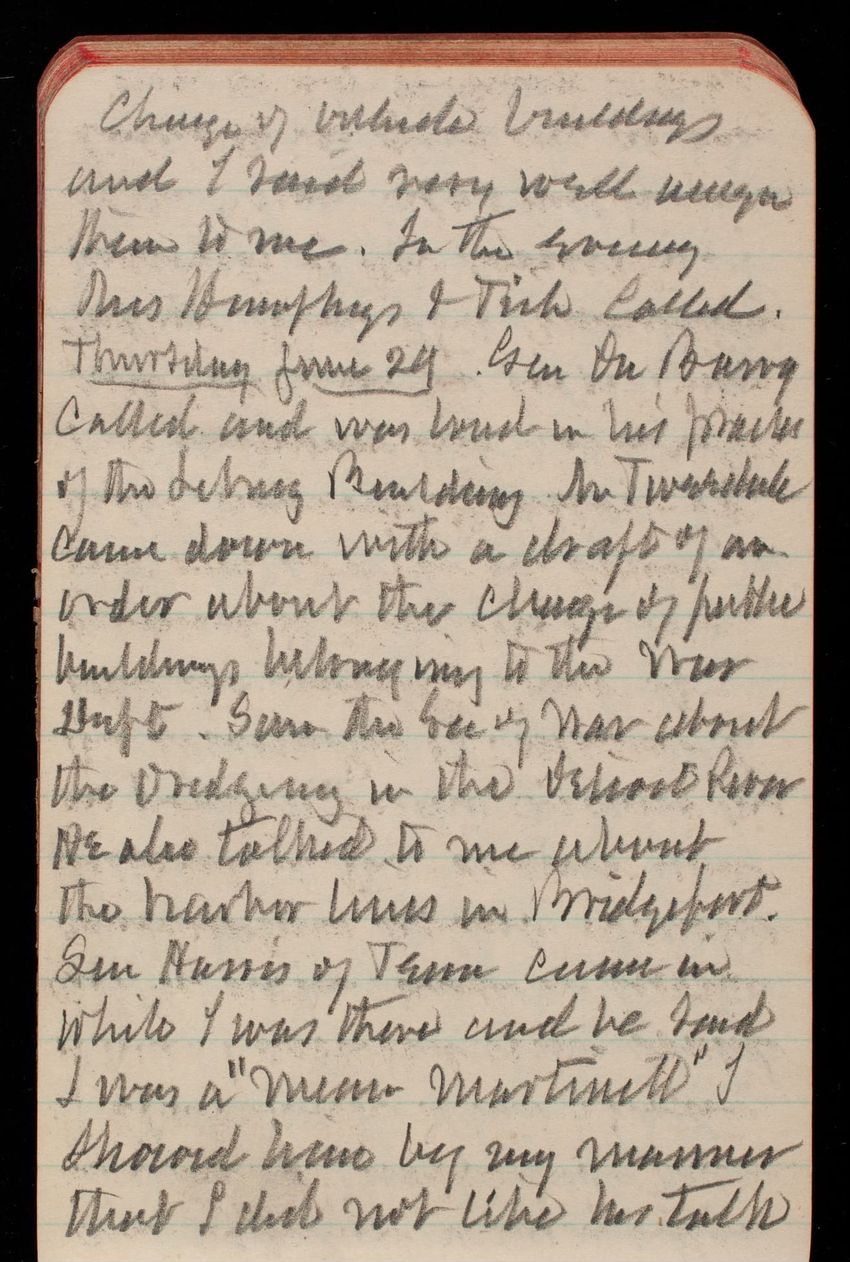 Charge of outside buildings
and I said very well assign
them to me. In the evening
Mrs Humphreys & Tish Called.
Thursday June 29. Gen Du Barry
Called and was loud in his praise
of the Library Building Mr Tweedale
came down with a draft of an
order about the charge of public
buildings belonging to the War
Dept. Saw the Sec of War about
the Dredging in the Detroit River
He also talked to me about
the harbor lines in Bridgeport.
Sen Harris of Tenn came in
while I was there and he said
I was a "mean Martinett" I
showed him by my manner
that I did not like his talk